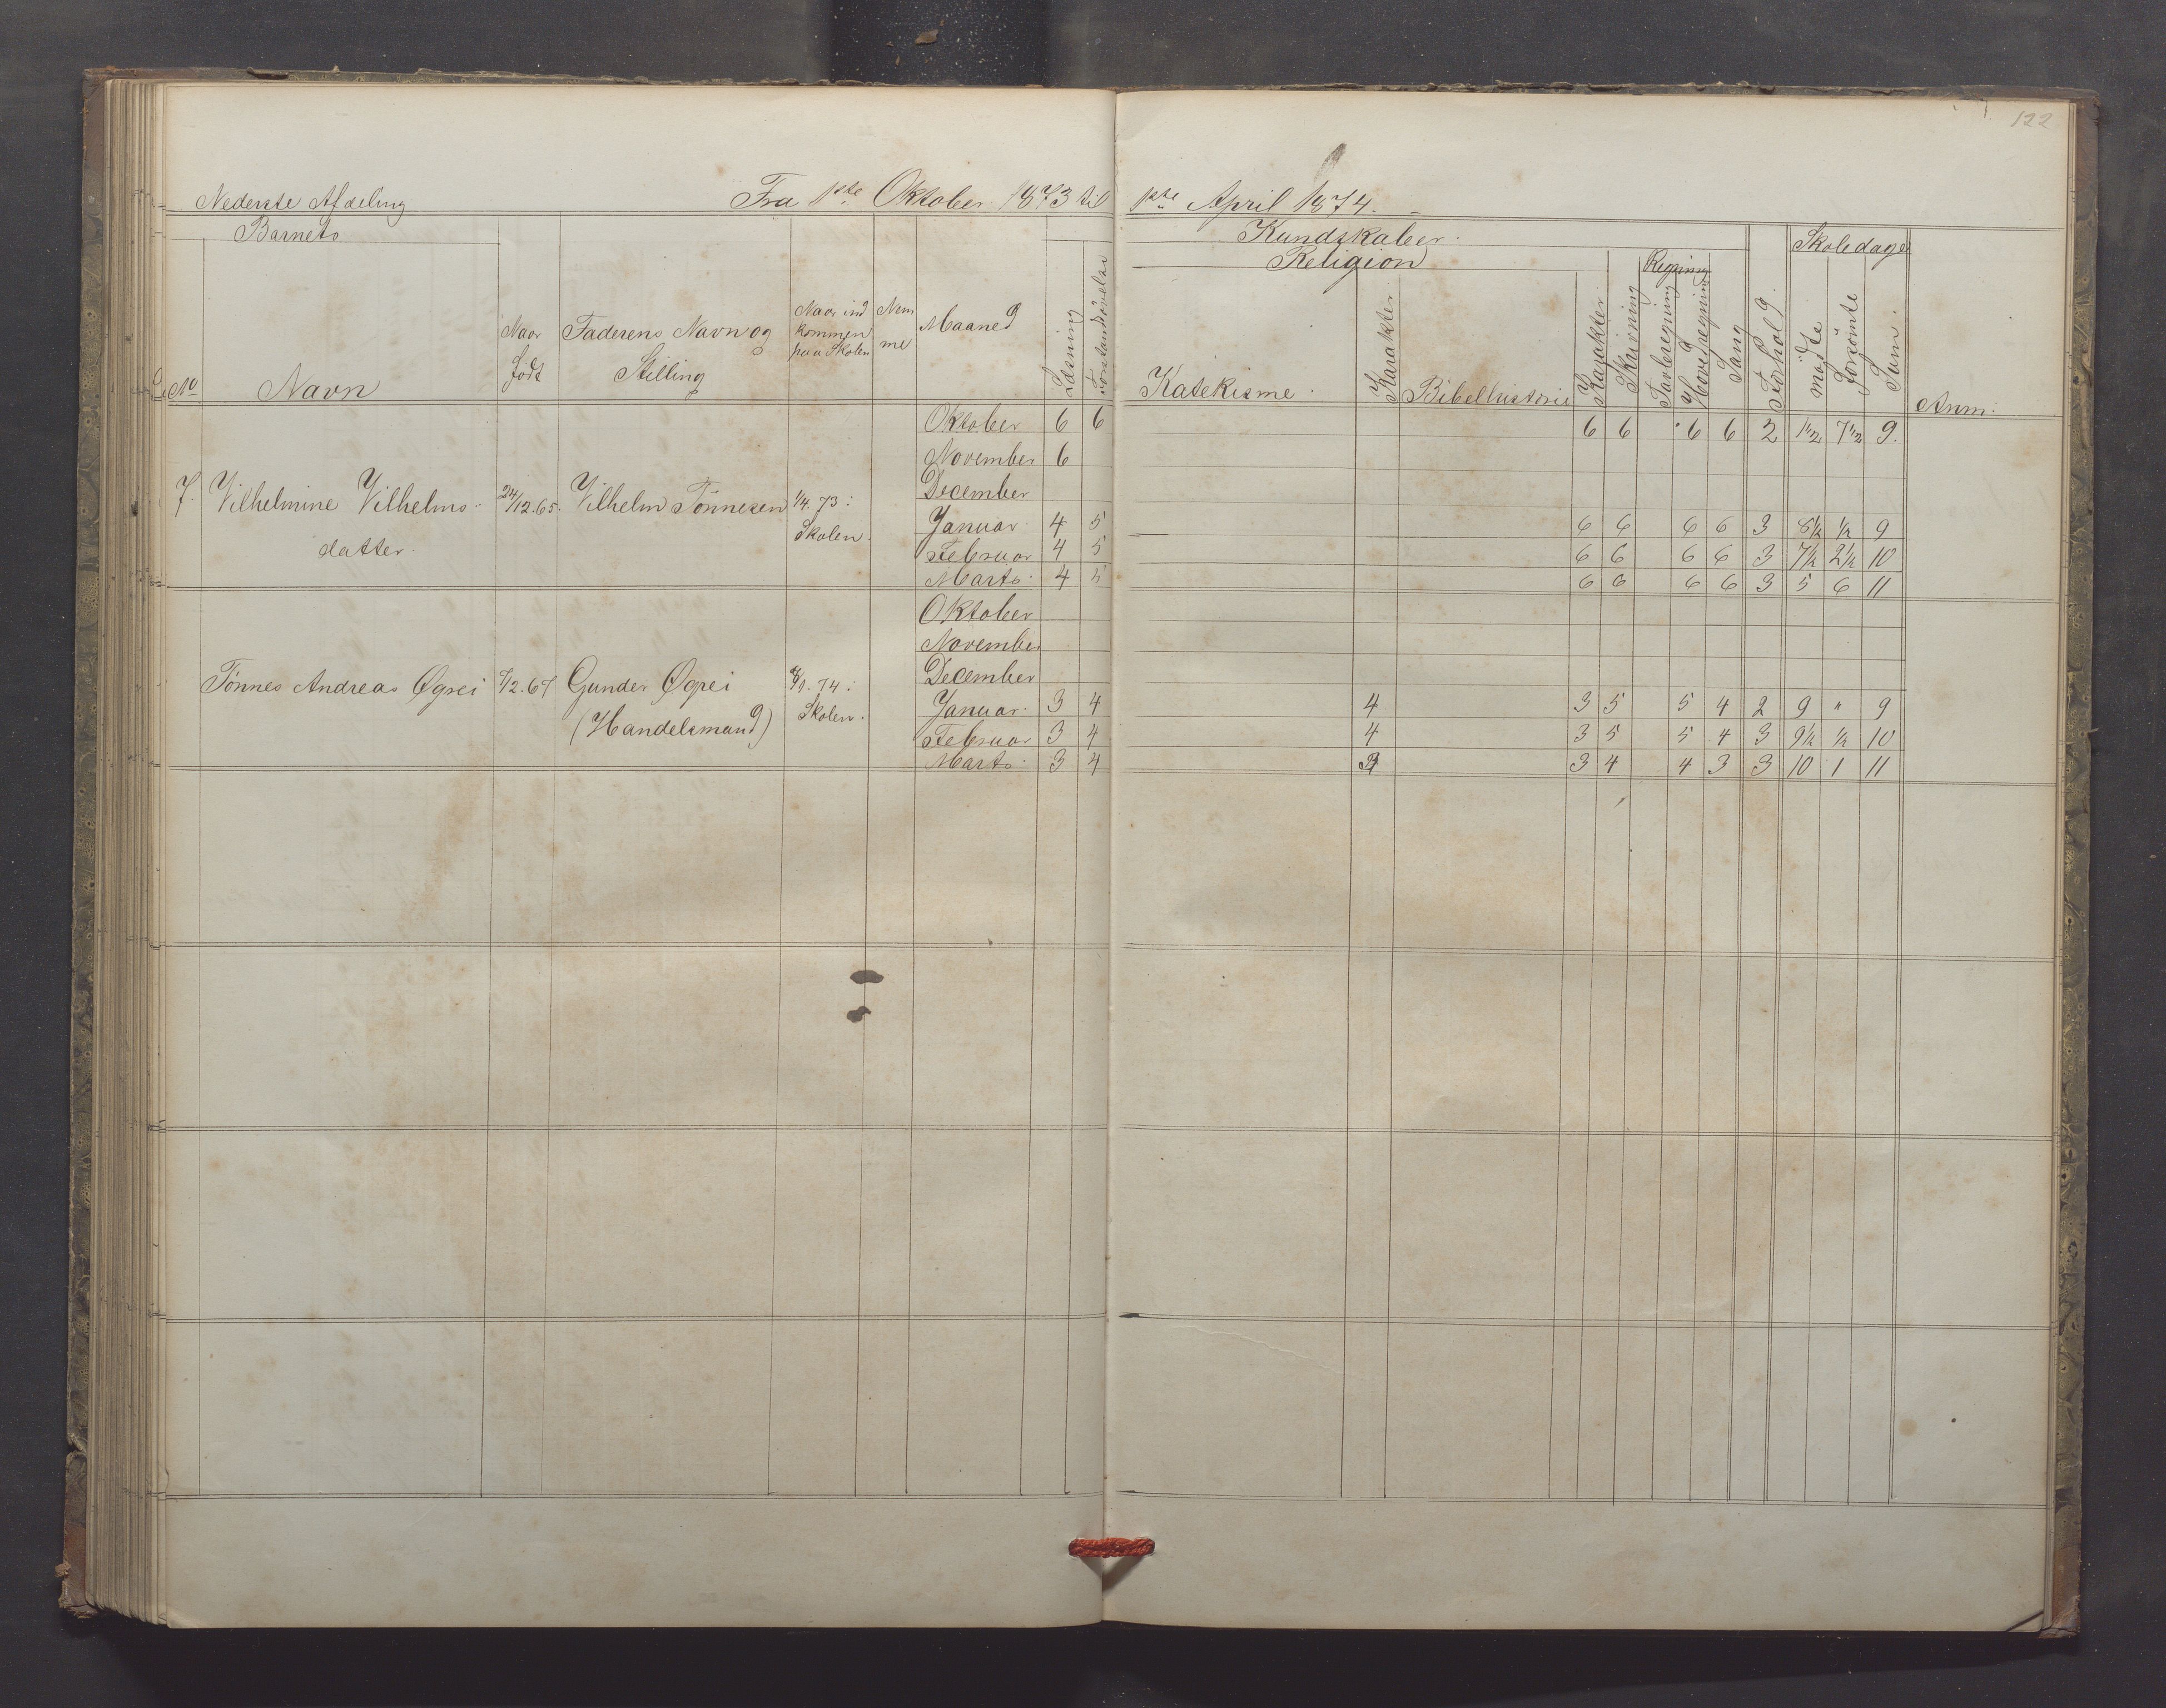 122
Nederste Afdeling Fra 1ste Oktober 1873 til 1ste April 1874.
Barnets Kundskaber. Skoledage
Religion Regning
No Navn Naar født Faderens Navn og Stilling Naar ind kommen paa Skolen Nem me Maaned Læsning Forstandsövelser Katekisme. Karakter. Bibelhistorie Karakter Skrivning Tavleregning Hovedregning Sang Forhold. mødte forsömte Sum. Anm.
Oktober 6 6 6 6 6 6 2 1 1/2 7 1/2 9.
November 6
7. Vilhelmine Vilhelms- 24/12.65. Vilhelm Tönnesen 1/4.73: December
datter. Skolen. Januar. 4 5 6 6 6 6 3 8 1/2 1/2 9
Februar 4 5 6 6 6 6 3 7 1/2 2 1/2 10
Marts. 4 5 6 6 6 6 3 5 6 11
Oktober
November
Tönnes Andreas Øgrei /12.67 Gunder Øgrei /1.74: December
(Handelsmand) Skolen. Januar. 3 4 4 3 5 5 4 2 9 " 9
Februar 3 4 4 3 5 5 4 3 9 1/2 1/2 10
Marts. 3 4 3 4 4 3 3 10 1 11